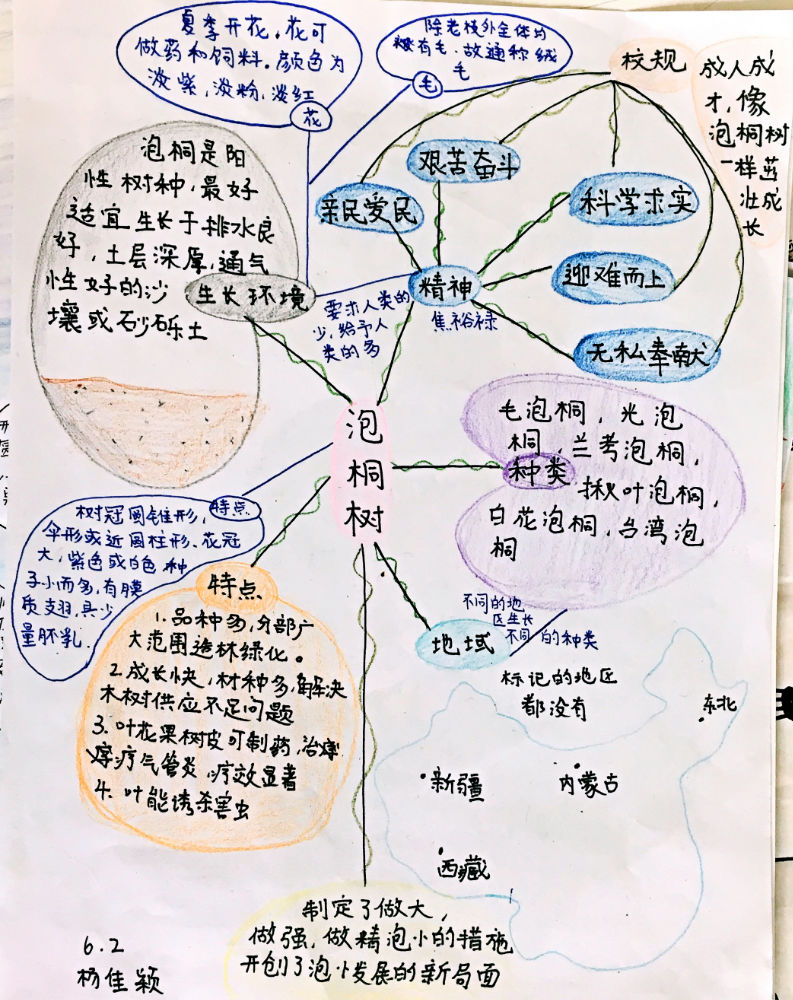 夏季开花,花可
做药和饲料。颜色为
淡紫,淡粉,淡红
花
除老枝外全体均
被有毛,故通称绒
毛
毛
校规
成人成
才,像
泡桐树
一样茁
壮成
长
泡桐是阳
性树种,最好
适宜生长于排水良
好,土层深厚,通气
性好的沙
壤或砂砾土
生长环境
艰苦奋斗
亲民爱民
科学求实
迎难而上
无私奉献
精神
焦裕禄
要求人类的
少,给予人
类的多
泡
桐
树
毛泡桐,光泡
桐,兰考泡桐,
种类
楸叶泡桐,
白花泡桐,台湾泡
桐
树冠圆锥形,
特点
伞形或近圆柱形、花冠
大,紫色或白色 种
子小而多,有膜
质翅,具少
量胚乳.
特点
1.品种多,外部广
大范围造林绿化。
2.成长快,材种多,解决
木树供应不足问题
3.叶花果树皮可制药,治
疗气管炎,疗效显著
4.叶能诱杀害虫
不同的地
区生长
不同的种类
地域
标记的地区
都没有
东北
新疆
内蒙古
西藏
制定了做大,
做强,做精泡小的措施
开创了泡小发展的新局面
6.2
杨佳颖